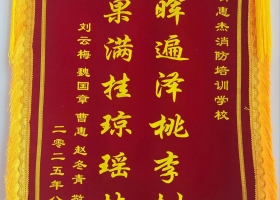 惠杰消防培训学校
晖遍泽桃李
果满挂琼瑶
刘云梅 魏国章 曹惠 赵冬青
二零二五年